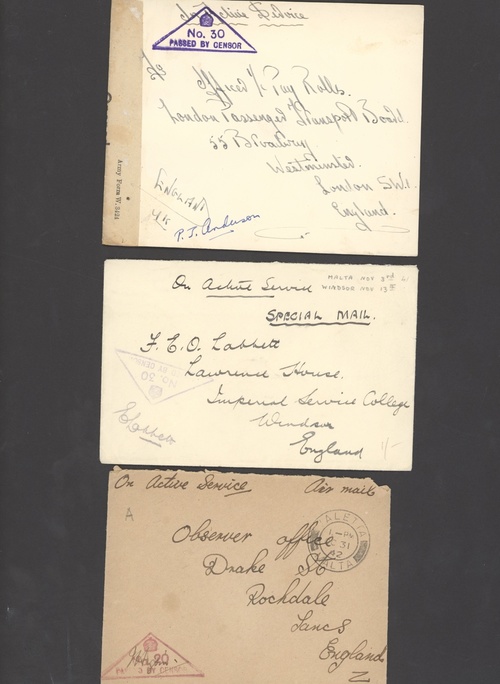 On Active Service
No. 30
PASSED BY CENSOR
Officer i/c Pay Rolls.
London Passenger Transport Board.
55 Broadway
Westminster.
London S.W.1.
England.
ENGLAND
UK
P. J. Anderson
Army Form W.3424
On Active Service
MALTA NOV 3rd
WINDSOR NOV 13th
SPECIAL MAIL.
F. E. O. Labbett
Lawrence House.
Imperial Service College
Windsor
England
No. 30
1/-
On Active Service Air mail
A
VALETTA
1-PM
31
42
MALTA
Observer office
Drake St
Rochdale
Lancs
England